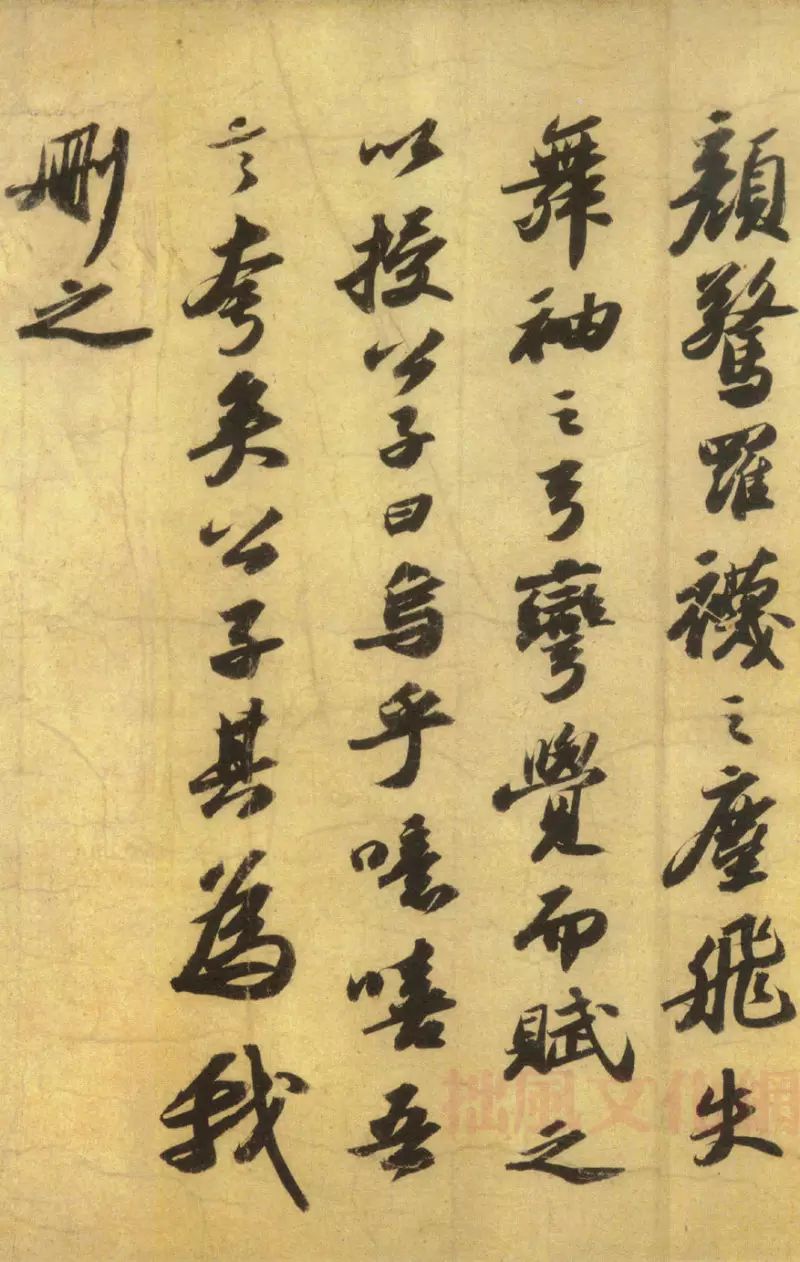 顏驚羅襪之塵飛失
舞袖之弓彎覺而賦之
以授公子曰烏乎噫嘻吾
言夸矣公子其為我
刪之
拙風文化網